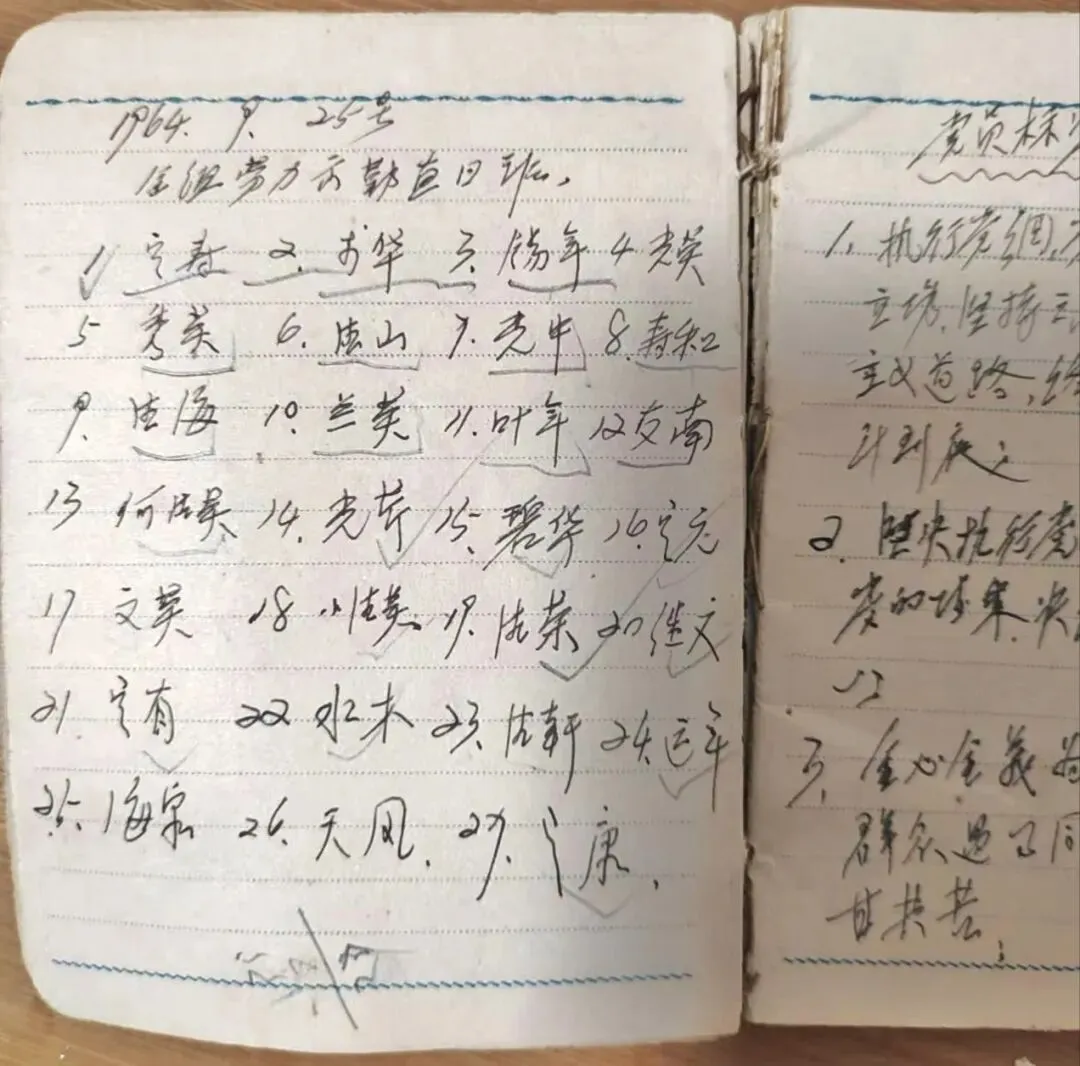 1964. 9. 25号
全组劳力出勤值日班.
1 定寿 2. 才华 3. 杨年 4 光英
5 秀英 6. 法山 7. 光中 8. 寿和
9. 法海 10. 兰英 11. 叶年 12 友南
13 何法英 14. 光芹 15. 碧华 16. 定元
17 文英 18 小法英 19. 法荣 20 继文
21 定有 22 水木 23. 法轩 24. 运年
25. 海泉 26. 天凤. 27. 定康.
党员标
1. 执行党纲,
立场, 坚持
主义道路,
斗到底.
2. 坚决执行党
党的政策. 决
3. 全心全义为
群众
甘共苦.